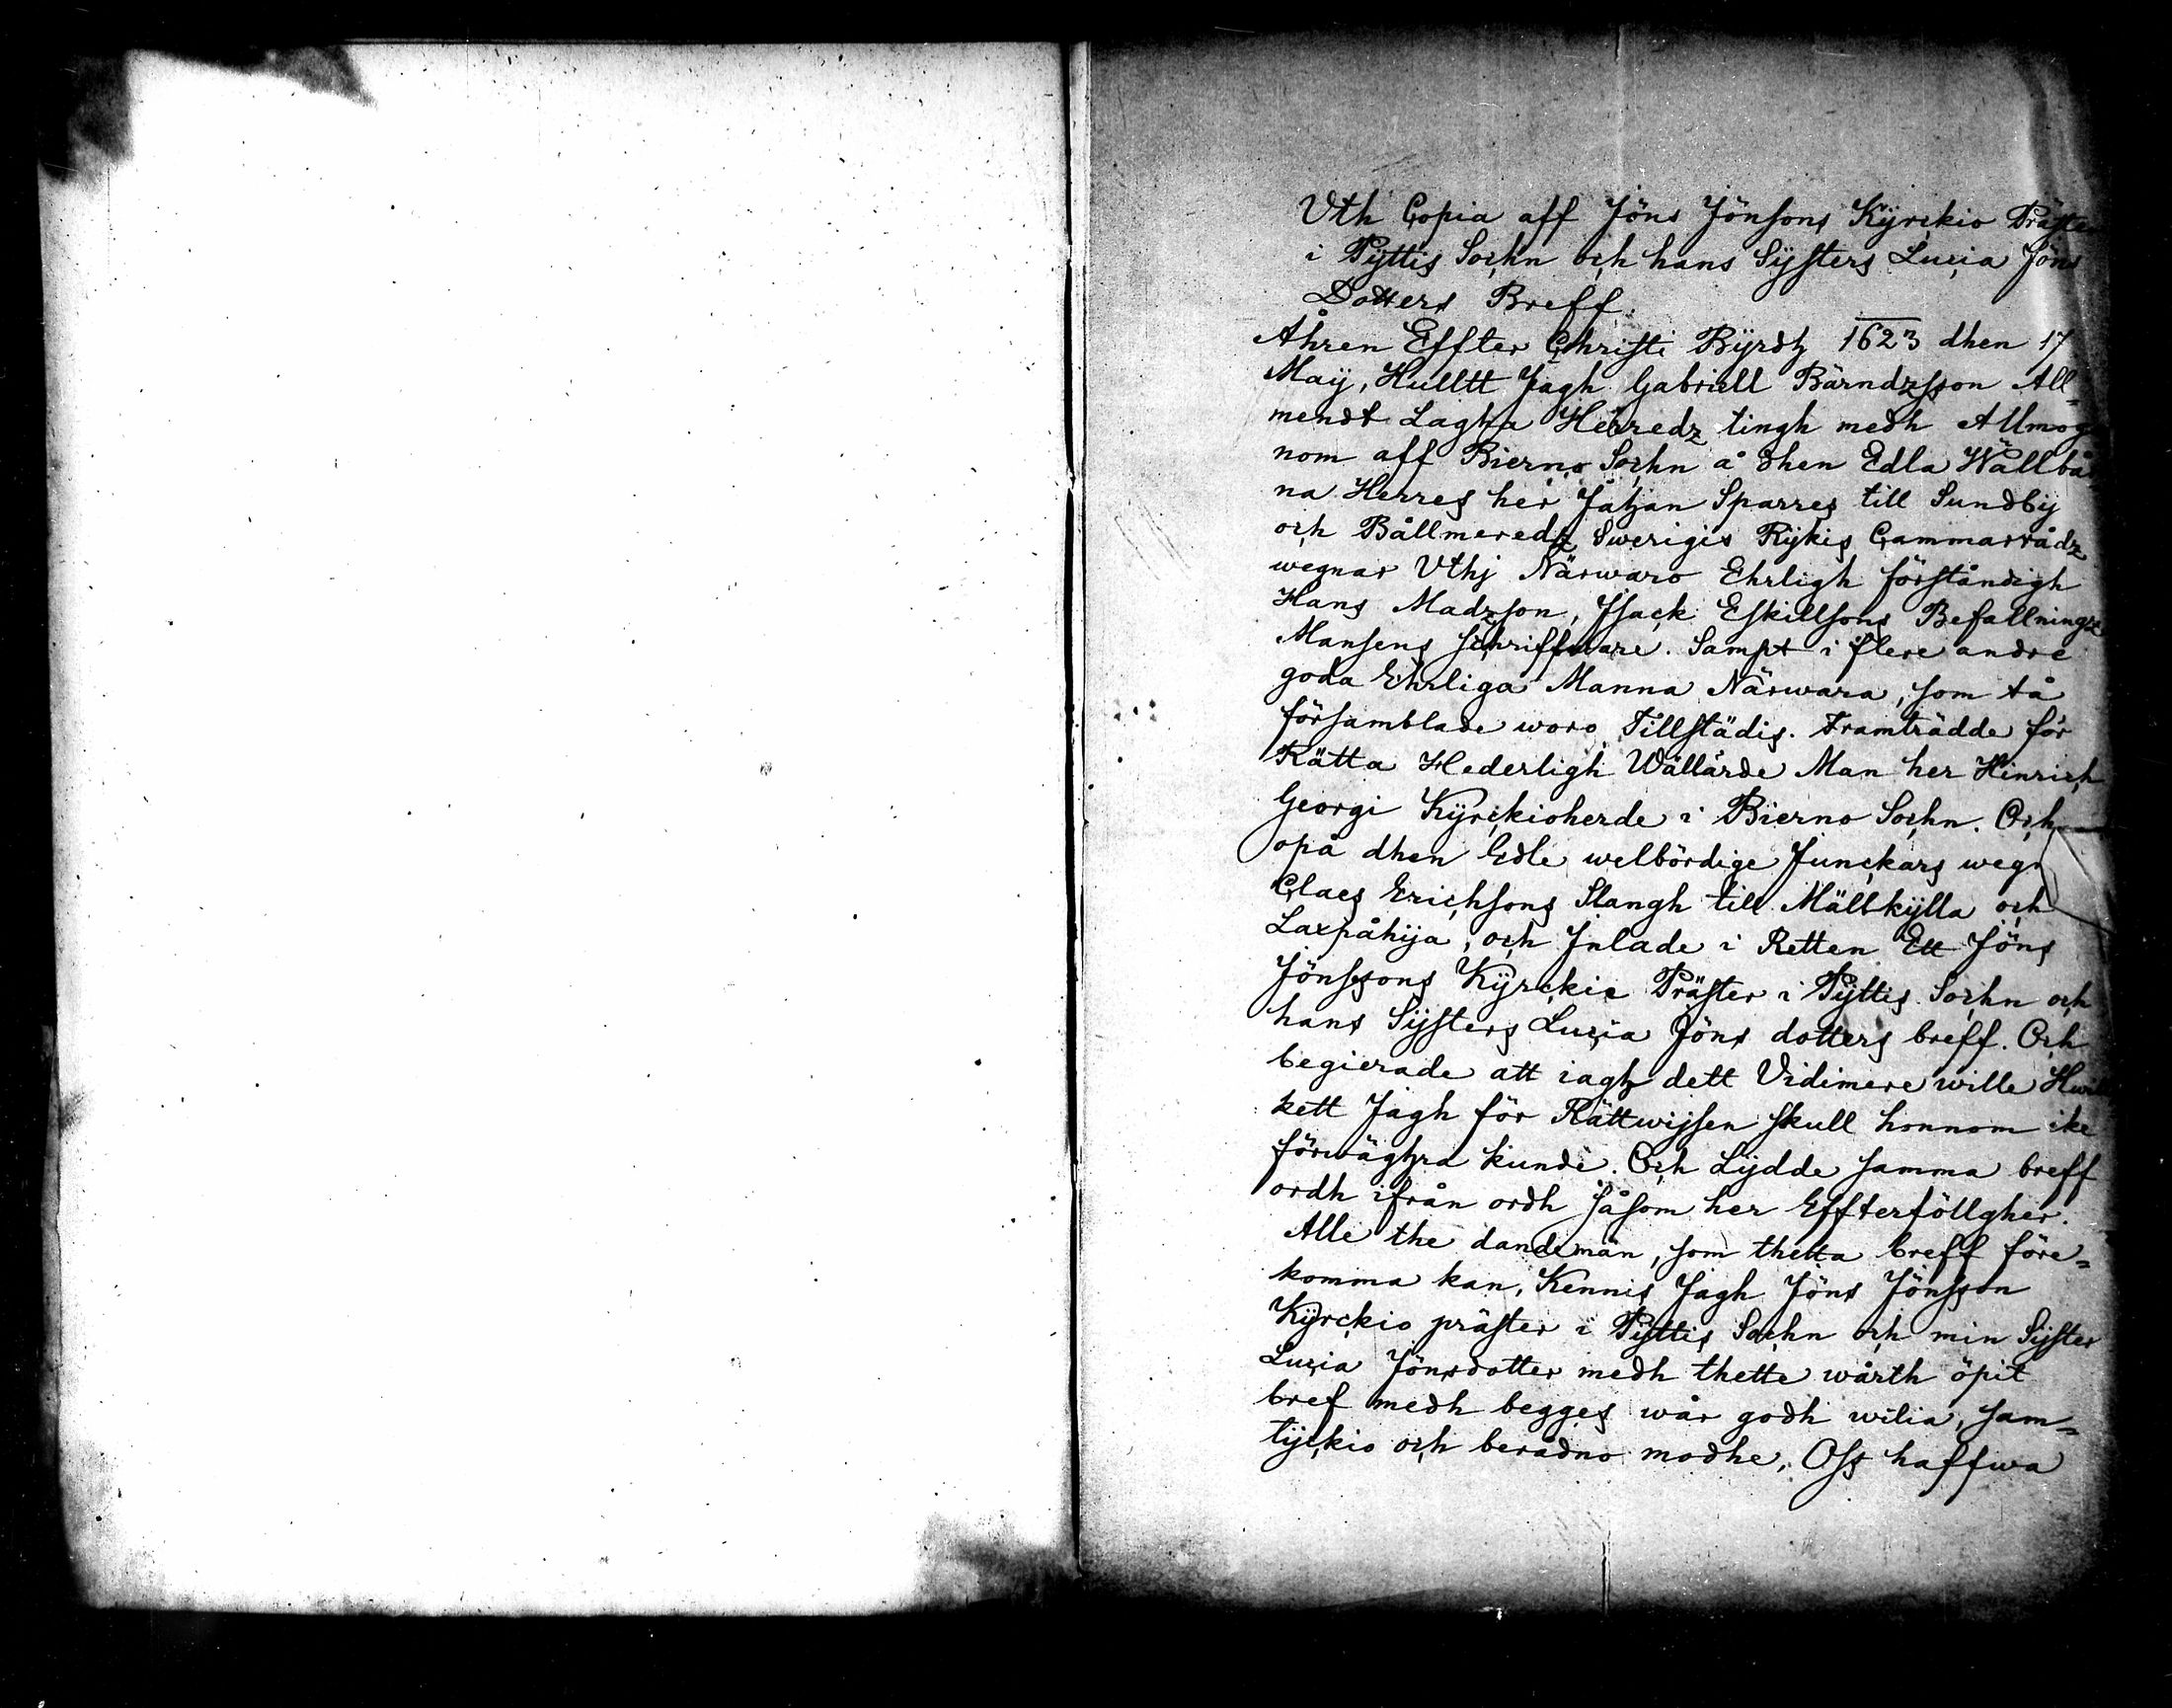 Vth Copia aff Jöns Jönsons Kÿrckio Präster
i Pÿttis Sochn och hans Sÿsters Lucia Jöns
Dotters Breff.
Åhren Effter Christi Bÿrdh 1623 dhen 17
Maÿ, Hulltt Jagh Gabriell Bärndzsson All=
mendt Lagha Herredz tingh medh Allmoge
nom aff Bierno Sochn å dhen Edla Wällbå
na Herres her Jåhan Sparres till Sundbÿ
och Bållmeredz Swerigis Rÿkis Cammarrådz
wegnar Vthj Närwaro Ehrligh förståndigh
Hans Madzson, Jsack Eskillsons Befallningz
Mansens schriffware. Sampt i flere andre
goda Ehrliga Manna Närwara, som tå
församblade woro Tillstädis. Framträdde för
Rätta Hederligh Wällärde Man her Hinrich
Georgi Kÿrckioherde i Bierno Sochn. Och
opå dhen Edle welbördige Junckars wegn
Claes Erichsons Slangh till Mällkÿlla och
Laxpåhija, och Jnlade i Retten Ett Jöns
Jönssons Kÿrckio Präster i Pÿttis Sochn och
hans Sÿsters Lucia Jöns dotters breff. Och
begierade att iagh dett Vidimere wille Hwil
kett Jagh för Rättwijsen skull honnom ike
förwäghra kunde. Och Lÿdde samma breff
ordh ifrån ordh såsom her Effterföllgher.
Alle the dandemän, som thetta breff före=
komma kan, Kennis Jagh Jöns Jönsson
Kÿrckio präster i Pÿttis Sochn och min Sÿster
Lucia Jönsdotter medh thette wårth öpit
bref medh begges wår godh wilia, sam=
tÿckio och berådno modhe, Oss haffwa